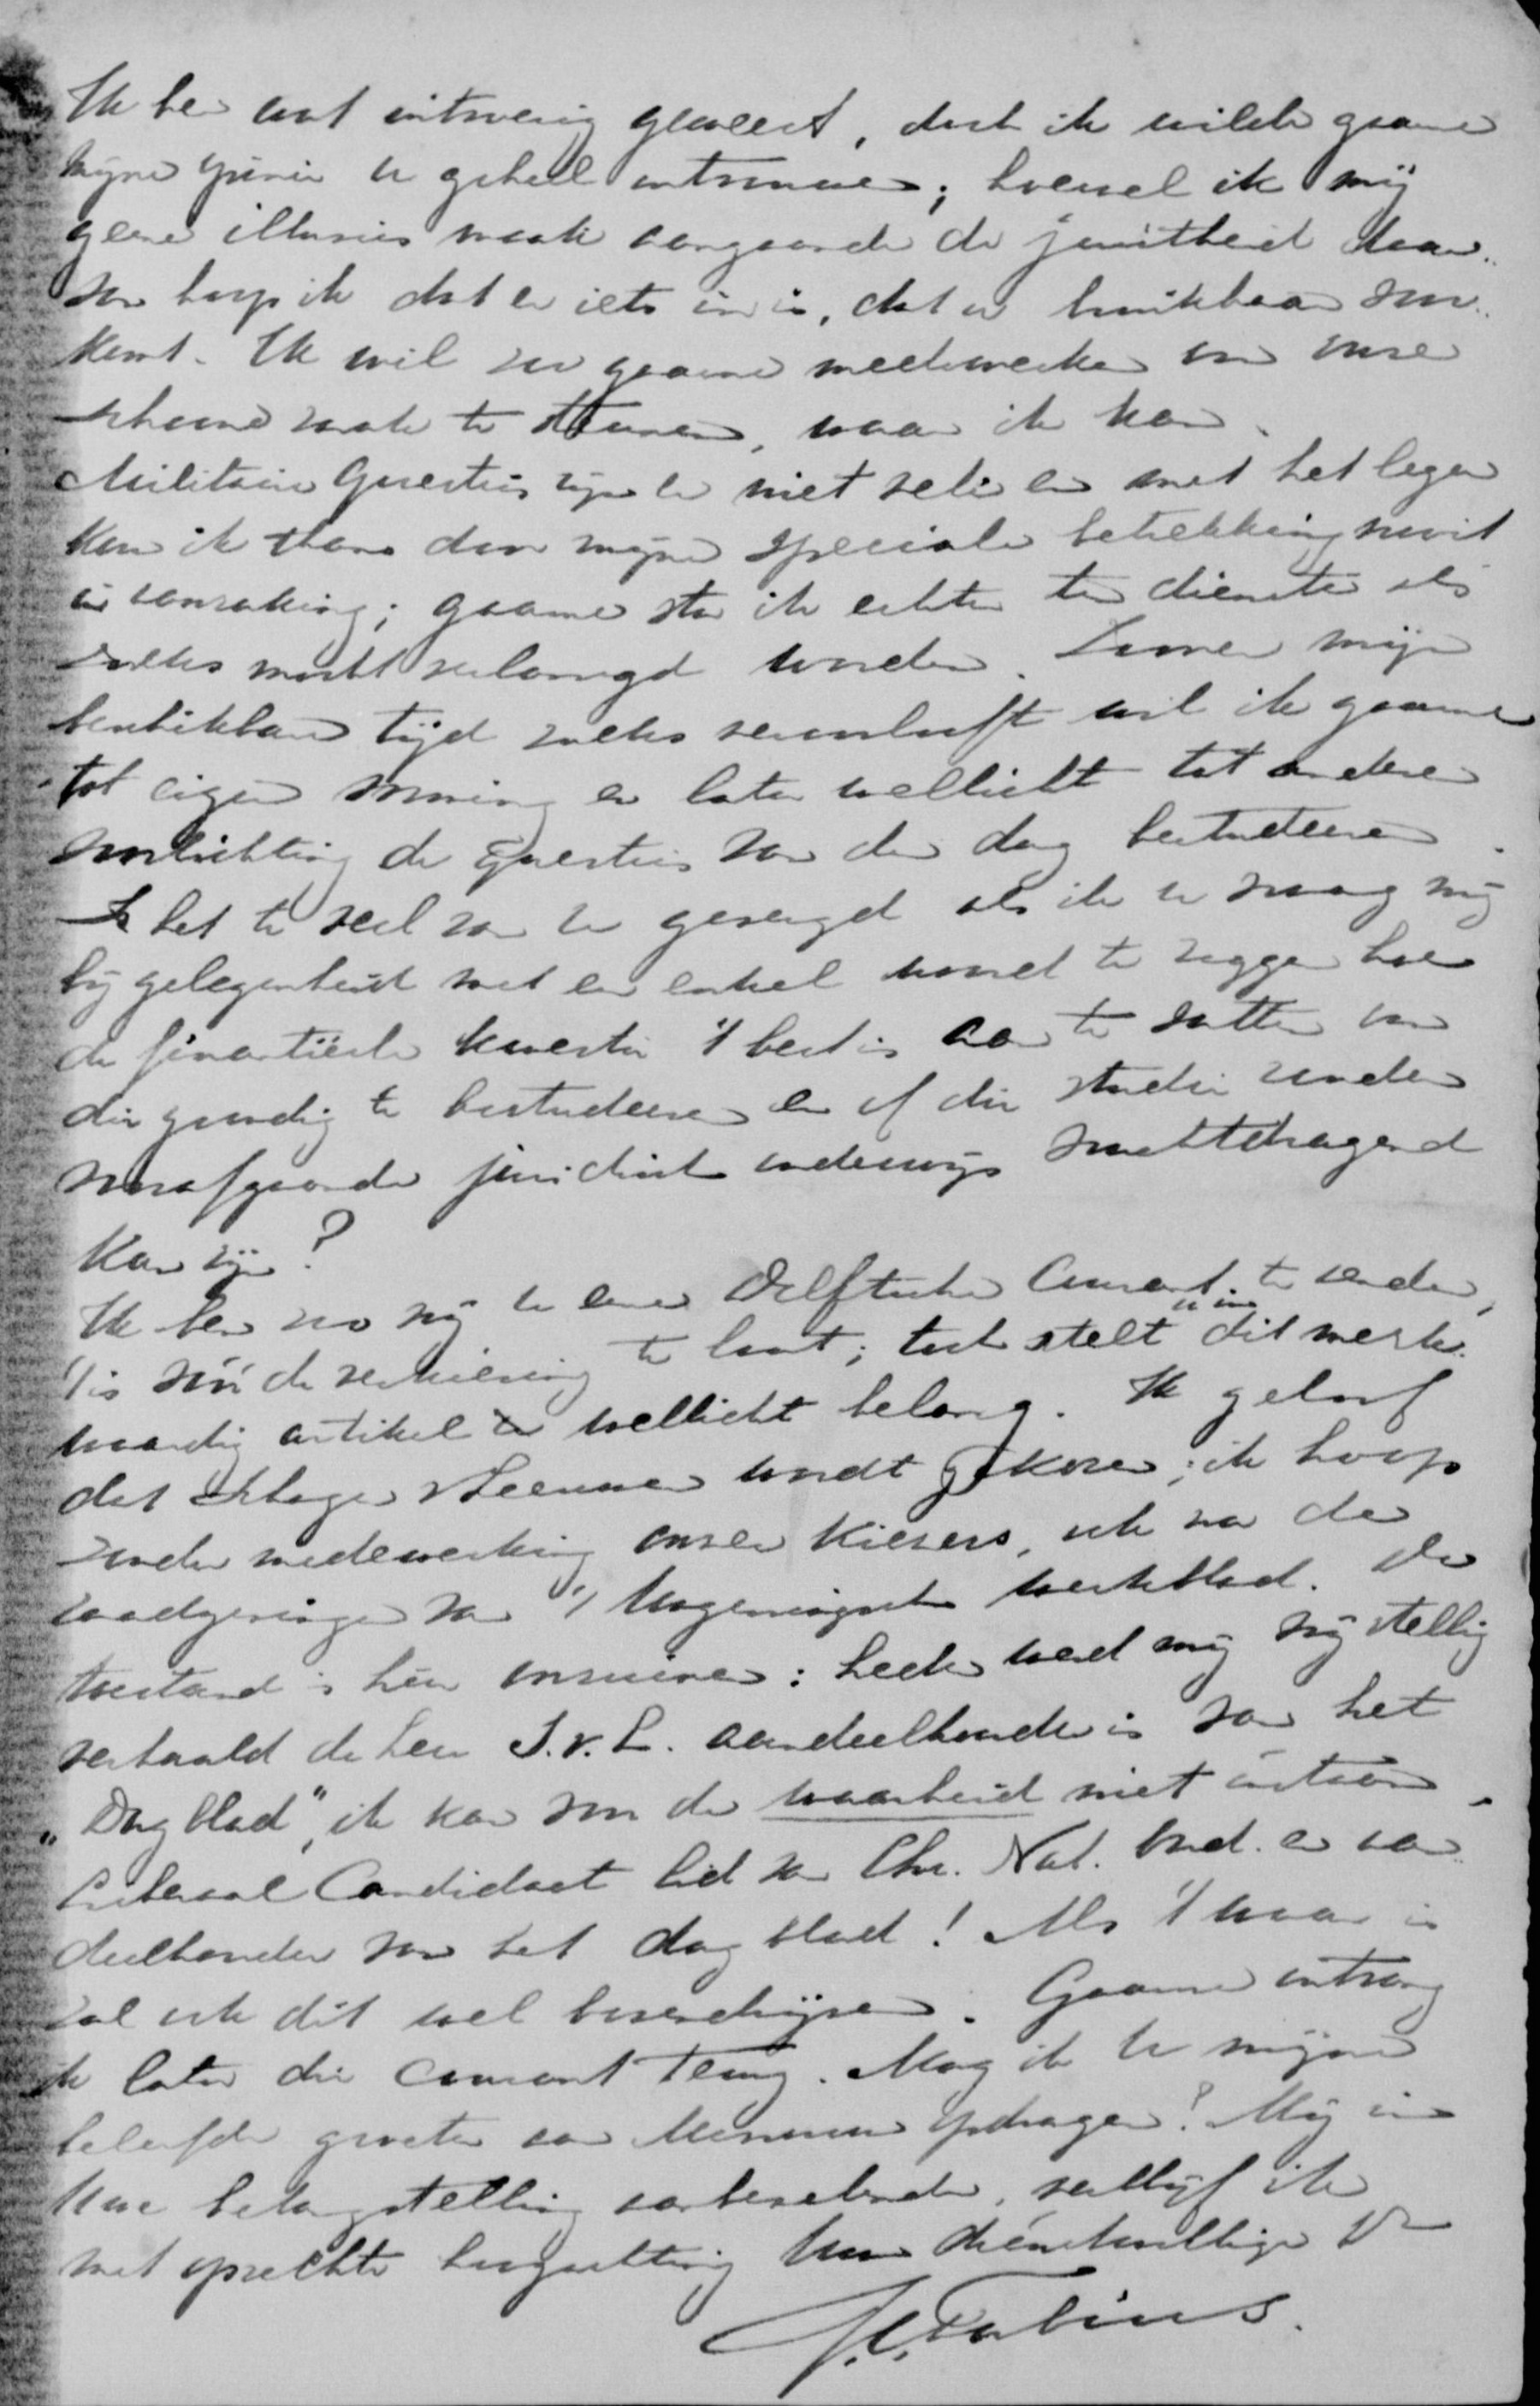 Ik ben wat uitvoerig geweest, doch ik wilde gaarne
mijne opinie u geheel ontvouwen; hoewel ik mij
geene illusies maak aangaande de juistheid daar-
van hoop ik dat er iets in is, dat u bruikbaar voor-
komt. Ik wil zoo gaarne medewerken om onze
schoone zaak te steunen, waar ik kan.
Militaire questies zijn er niet vele en met het leger
kom ik thans door mijne speciale betrekking nooit
in aanraking; gaarne sta ik echter ten dienste als
zulks mocht verlangd worden. Zoover mijn
beschikbare tijd zulks veroorlooft wil ik gaarne
tot eigen vorming en later wellicht tot anderer
voorlichting de questies van den dag bestudeeren.
Is het te veel van u gevergd als ik u vraag mij
bij gelegenheid met een enkel woord te zeggen hoe
de finantiëele kwestie 't best is aan te vatten om
die grondig te bestudeeren en of die studie zonder
voorafgaande juridisch onderwijs vruchtdragend
kan zijn?
Ik ben zoo vrij u eene Delftsche Courant te zenden,
't is vóór de verkiezing te laat; toch stelt u in dit merk-
waardig artikel wellicht belang. Ik geloof
dat Schagen v Leeuwen wordt gekozen; ik hoop
zonder medewerking onzer kiezers, ook na de
raadgevingen van 't Wageningsch weekblad. De
toestand is hier onzuiver: heden werd mij vrij stellig
verhaald de heer S.v.L. aandeelhouder is van het
„Dagblad", ik kan voor de waarheid niet instaan.
Liberaal Candidaat lid van Chr. Nat. Ond. en aan-
deelhouder van het dagblad! Als 't waar is
zal ook dit wel bovendrijven. Gaarne ontvang
ik later die courant terug. Mag ik u mijne
beleefde groeten aan Mevrouw opdragen? Mij in
Uwe belangstelling aanbevelende, verblijf ik
met oprechte hoogachting Uw dienstwillige Dr
J.C. Fabius.